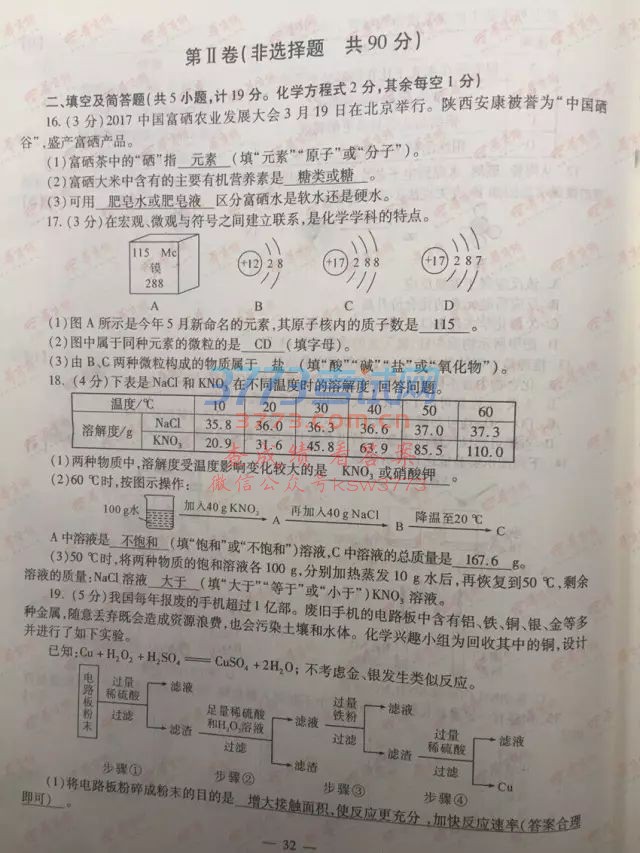 第Ⅱ卷(非选择题 共90分)
二、填空及简答题(共5小题,计19分。化学方程式2分,其余每空1分)
16.(3分)2017中国富硒农业发展大会3月19日在北京举行。陕西安康被誉为“中国硒
谷”,盛产富硒产品。
(1)富硒茶中的“硒”指 元素 (填“元素”“原子”或“分子”)。
(2)富硒大米中含有的主要有机营养素是 糖类或糖 。
(3)可用 肥皂水或肥皂液 区分富硒水是软水还是硬水。
17.(3分)在宏观、微观与符号之间建立联系,是化学学科的特点。
115 Mc
镆
288
+12 2 8
+17 2 8 8
+17 2 8 7
A B C D
(1)图A所示是今年5月新命名的元素,其原子核内的质子数是 115 。
(2)图中属于同种元素的微粒的是 CD (填字母)。
(3)由B、C两种微粒构成的物质属于 盐 (填“酸”“碱”“盐”或“氧化物”)。
18.(4分)下表是NaCl和KNO₃在不同温度时的溶解度,回答问题。
温度/℃ 10 20 30 40 50 60
溶解度/g NaCl 35.8 36.0 36.3 36.6 37.0 37.3
KNO₃ 20.9 31.6 45.8 63.9 85.5 110.0
(1)两种物质中,溶解度受温度影响变化较大的是 KNO₃或硝酸钾 。
(2)60℃时,按图示操作:
100 g水 加入40 g KNO₃ A 再加入40 g NaCl B 降温至20℃ C
A中溶液是 不饱和 (填“饱和”或“不饱和”)溶液,C中溶液的总质量是 167.6 g。
(3)50℃时,将两种物质的饱和溶液各100 g,分别加热蒸发10 g水后,再恢复到50℃,剩余
溶液的质量:NaCl溶液 大于 (填“大于”“等于”或“小于”)KNO₃溶液。
19.(5分)我国每年报废的手机超过1亿部。废旧手机的电路板中含有铝、铁、铜、银、金等多
种金属,随意丢弃既会造成资源浪费,也会污染土壤和水体。化学兴趣小组为回收其中的铜,设计
并进行了如下实验。
已知:Cu+H₂O₂+H₂SO₄══CuSO₄+2H₂O;不考虑金、银发生类似反应。
电路板粉末 过量稀硫酸 过滤 滤液 滤渣
足量稀硫酸和H₂O₂溶液 过滤 滤液 滤渣
过量铁粉 过滤 滤液 滤渣
过量稀硫酸 过滤 滤液 Cu
步骤① 步骤② 步骤③ 步骤④
(1)将电路板粉碎成粉末的目的是 增大接触面积,使反应更充分,加快反应速率(答案合理
即可) 。
— 32 —
3773考试网
3773.com.cn
查成绩 看答案
微信公众号ksw3773